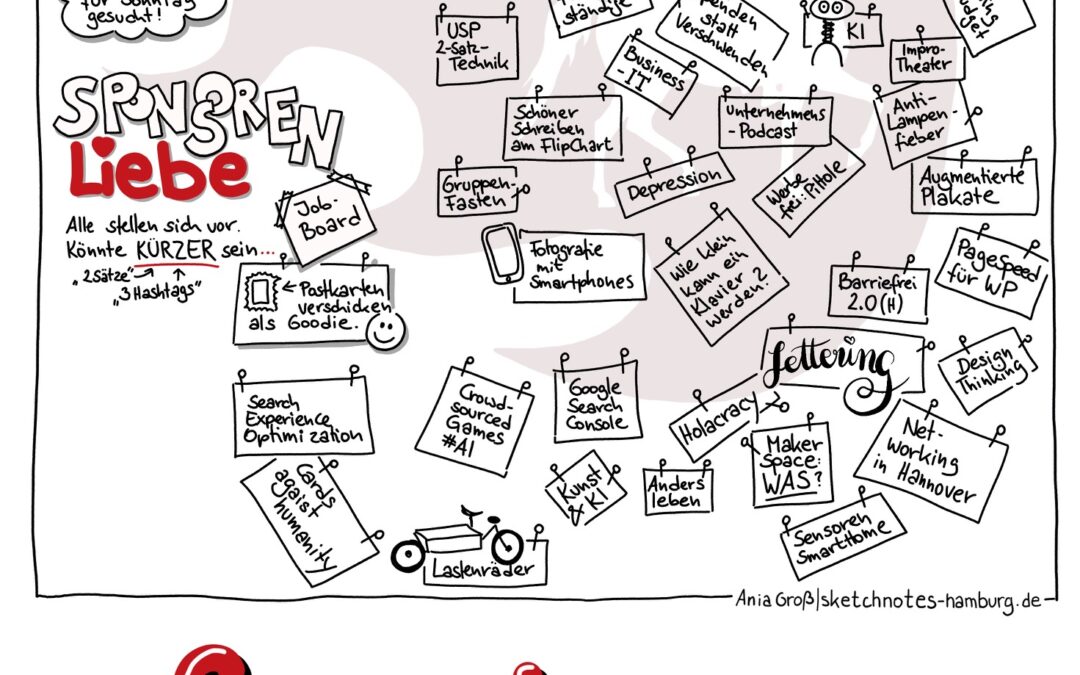 für Sonntag
gesucht!
SPONSOREN
Liebe
Alle stellen sich vor.
Könnte KÜRZER sein...
"2Sätze"
"3 Hashtags"
Job-
Board
← Postkarten
verschicken
als Goodie.
USP
2-Satz-
Technik
ständige
statt
Verschwenden
KI
Impro-
Theater
Business
-IT
Schöner
Schreiben
am FlipChart
Unternehmens
-Podcast
Anti-
Lampen-
fieber
Gruppen-
Fasten
Depression
Werbe
frei: Pihole
Augmentierte
Plakate
Fotografie
mit
Smartphones
Wie klein
kann ein
Klavier
werden?
Barriefrei
2.0 (H)
Pagespeed
für WP
Lettering
Design
Thinking
Search
Experience
Optimization
Crowd-
sourced
Games
#AI
Google
Search
Console
Holacracy
Maker
Space:
WAS?
Net-
working
in Hannover
Cards
agaist
humanity
Kunst
& KI
Anders
leben
Sensoren
SmartHome
Lastenräder
Ania Groß|sketchnotes-hamburg.de